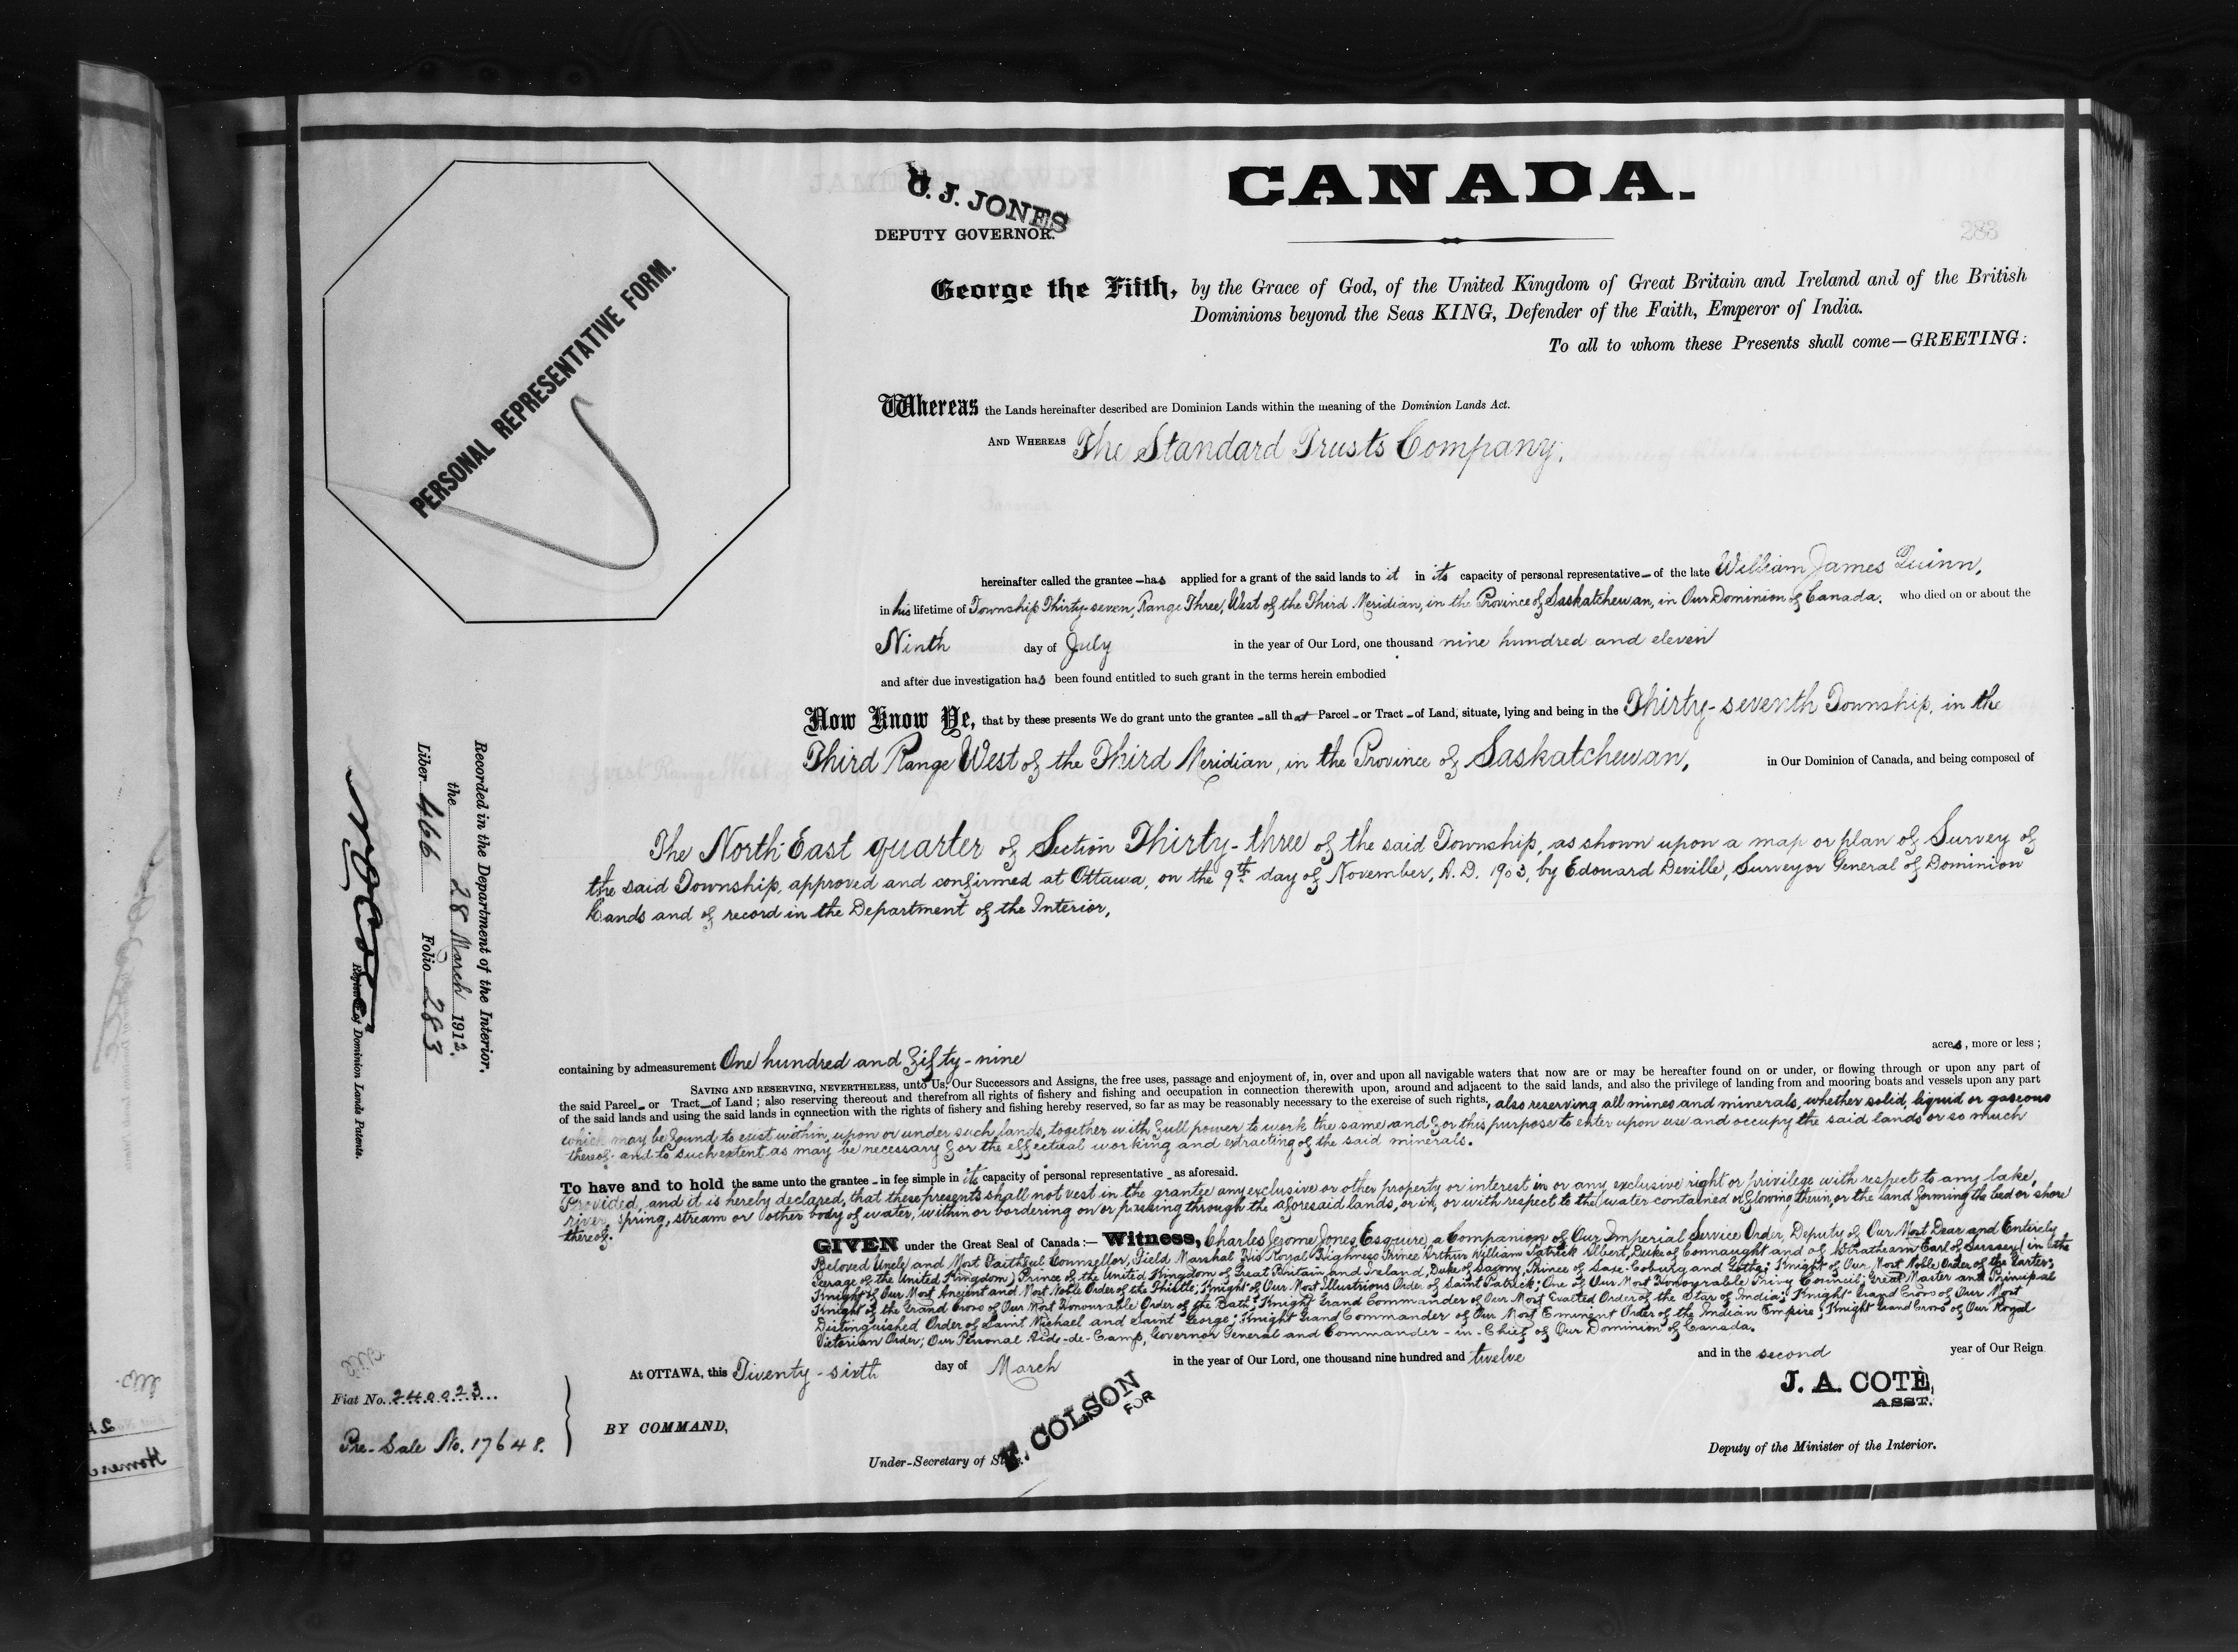 C. J. JONES
DEPUTY GOVERNOR.
CANADA.
283
PERSONAL REPRESENTATIVE FORM.
George the Fifth, by the Grace of God, of the United Kingdom of Great Britain and Ireland and of the British
Dominions beyond the Seas KING, Defender of the Faith, Emperor of India.
To all to whom these Presents shall come—GREETING:
Whereas the Lands hereinafter described are Dominion Lands within the meaning of the Dominion Lands Act.
AND WHEREAS The Standard Trusts Company,
hereinafter called the grantee – has applied for a grant of the said lands to it in its capacity of personal representative – of the late William James Quinn,
in his lifetime of Township Thirty-seven, Range Three, West of the Third Meridian, in the Province of Saskatchewan, in Our Dominion of Canada, who died on or about the
Ninth day of July in the year of Our Lord, one thousand nine hundred and eleven
and after due investigation has been found entitled to such grant in the terms herein embodied
Now Know Ye, that by these presents We do grant unto the grantee – all that Parcel – or Tract – of Land, situate, lying and being in the Thirty-seventh Township, in the
Third Range West of the Third Meridian, in the Province of Saskatchewan, in Our Dominion of Canada, and being composed of
The North East quarter of Section Thirty-three of the said Township, as shown upon a map or plan of Survey of
the said Township, approved and confirmed at Ottawa, on the 9th day of November, A.D. 1903, by Edouard Deville, Surveyor General of Dominion
Lands and of record in the Department of the Interior,
containing by admeasurement One hundred and fifty-nine acres, more or less;
SAVING AND RESERVING, NEVERTHELESS, unto Us, Our Successors and Assigns, the free uses, passage and enjoyment of, in, over and upon all navigable waters that now are or may be hereafter found on or under, or flowing through or upon any part of
the said Parcel – or Tract – of Land; also reserving thereout and therefrom all rights of fishery and fishing and occupation in connection therewith upon, around and adjacent to the said lands, and also the privilege of landing from and mooring boats and vessels upon any part
of the said lands and using the said lands in connection with the rights of fishery and fishing hereby reserved, so far as may be reasonably necessary to the exercise of such rights, also reserving all mines and minerals, whether solid, liquid or gaseous
which may be found to exist within, upon or under such lands, together with full power to work the same and for this purpose to enter upon use and occupy the said lands or so much
thereof and to such extent as may be necessary for the effectual working and extracting of the said minerals.
To have and to hold the same unto the grantee – in fee simple in its capacity of personal representative – as aforesaid.
Provided, and it is hereby declared, that these presents shall not vest in the grantee any exclusive or other property or interest in or any exclusive right or privilege with respect to any lake,
river, spring, stream or other body of water, within or bordering on or passing through the aforesaid lands, or in, or with respect to the water contained or flowing therein, or the land forming the bed or shore
thereof.
GIVEN under the Great Seal of Canada:— Witness, Charles Jerome Jones, Esquire, a Companion of Our Imperial Service Order, Deputy of Our Most Dear and Entirely
Beloved Uncle and Most Faithful Counsellor, Field Marshal His Royal Highness Prince Arthur William Patrick Albert, Duke of Connaught and of Strathearn, Earl of Sussex (in the
Peerage of the United Kingdom) Prince of the United Kingdom of Great Britain and Ireland, Duke of Saxony, Prince of Saxe-Coburg and Gotha; Knight of Our Most Noble Order of the Garter;
Knight of Our Most Ancient and Most Noble Order of the Thistle; Knight of Our Most Illustrious Order of Saint Patrick; One of Our Most Honourable Privy Council; Great Master and Principal
Knight of the Grand Cross of Our Most Honourable Order of the Bath; Knight Grand Commander of Our Most Exalted Order of the Star of India; Knight Grand Cross of Our Most
Distinguished Order of Saint Michael and Saint George; Knight Grand Commander of Our Most Eminent Order of the Indian Empire; Knight Grand Cross of Our Royal
Victorian Order; Our Personal Aide-de-Camp, Governor General and Commander-in-Chief of Our Dominion of Canada.
At OTTAWA, this Twenty-sixth day of March in the year of Our Lord, one thousand nine hundred and twelve and in the second year of Our Reign
J. A. COTE,
ASST.
Deputy of the Minister of the Interior.
BY COMMAND,
F. COLSON
FOR
Under-Secretary of State.
Fiat No. 240023
Pre-Sale No. 17648.
Recorded in the Department of the Interior,
the 28 March 1912.
Liber 466 Folio 283
Registrar of Dominion Lands Patents.